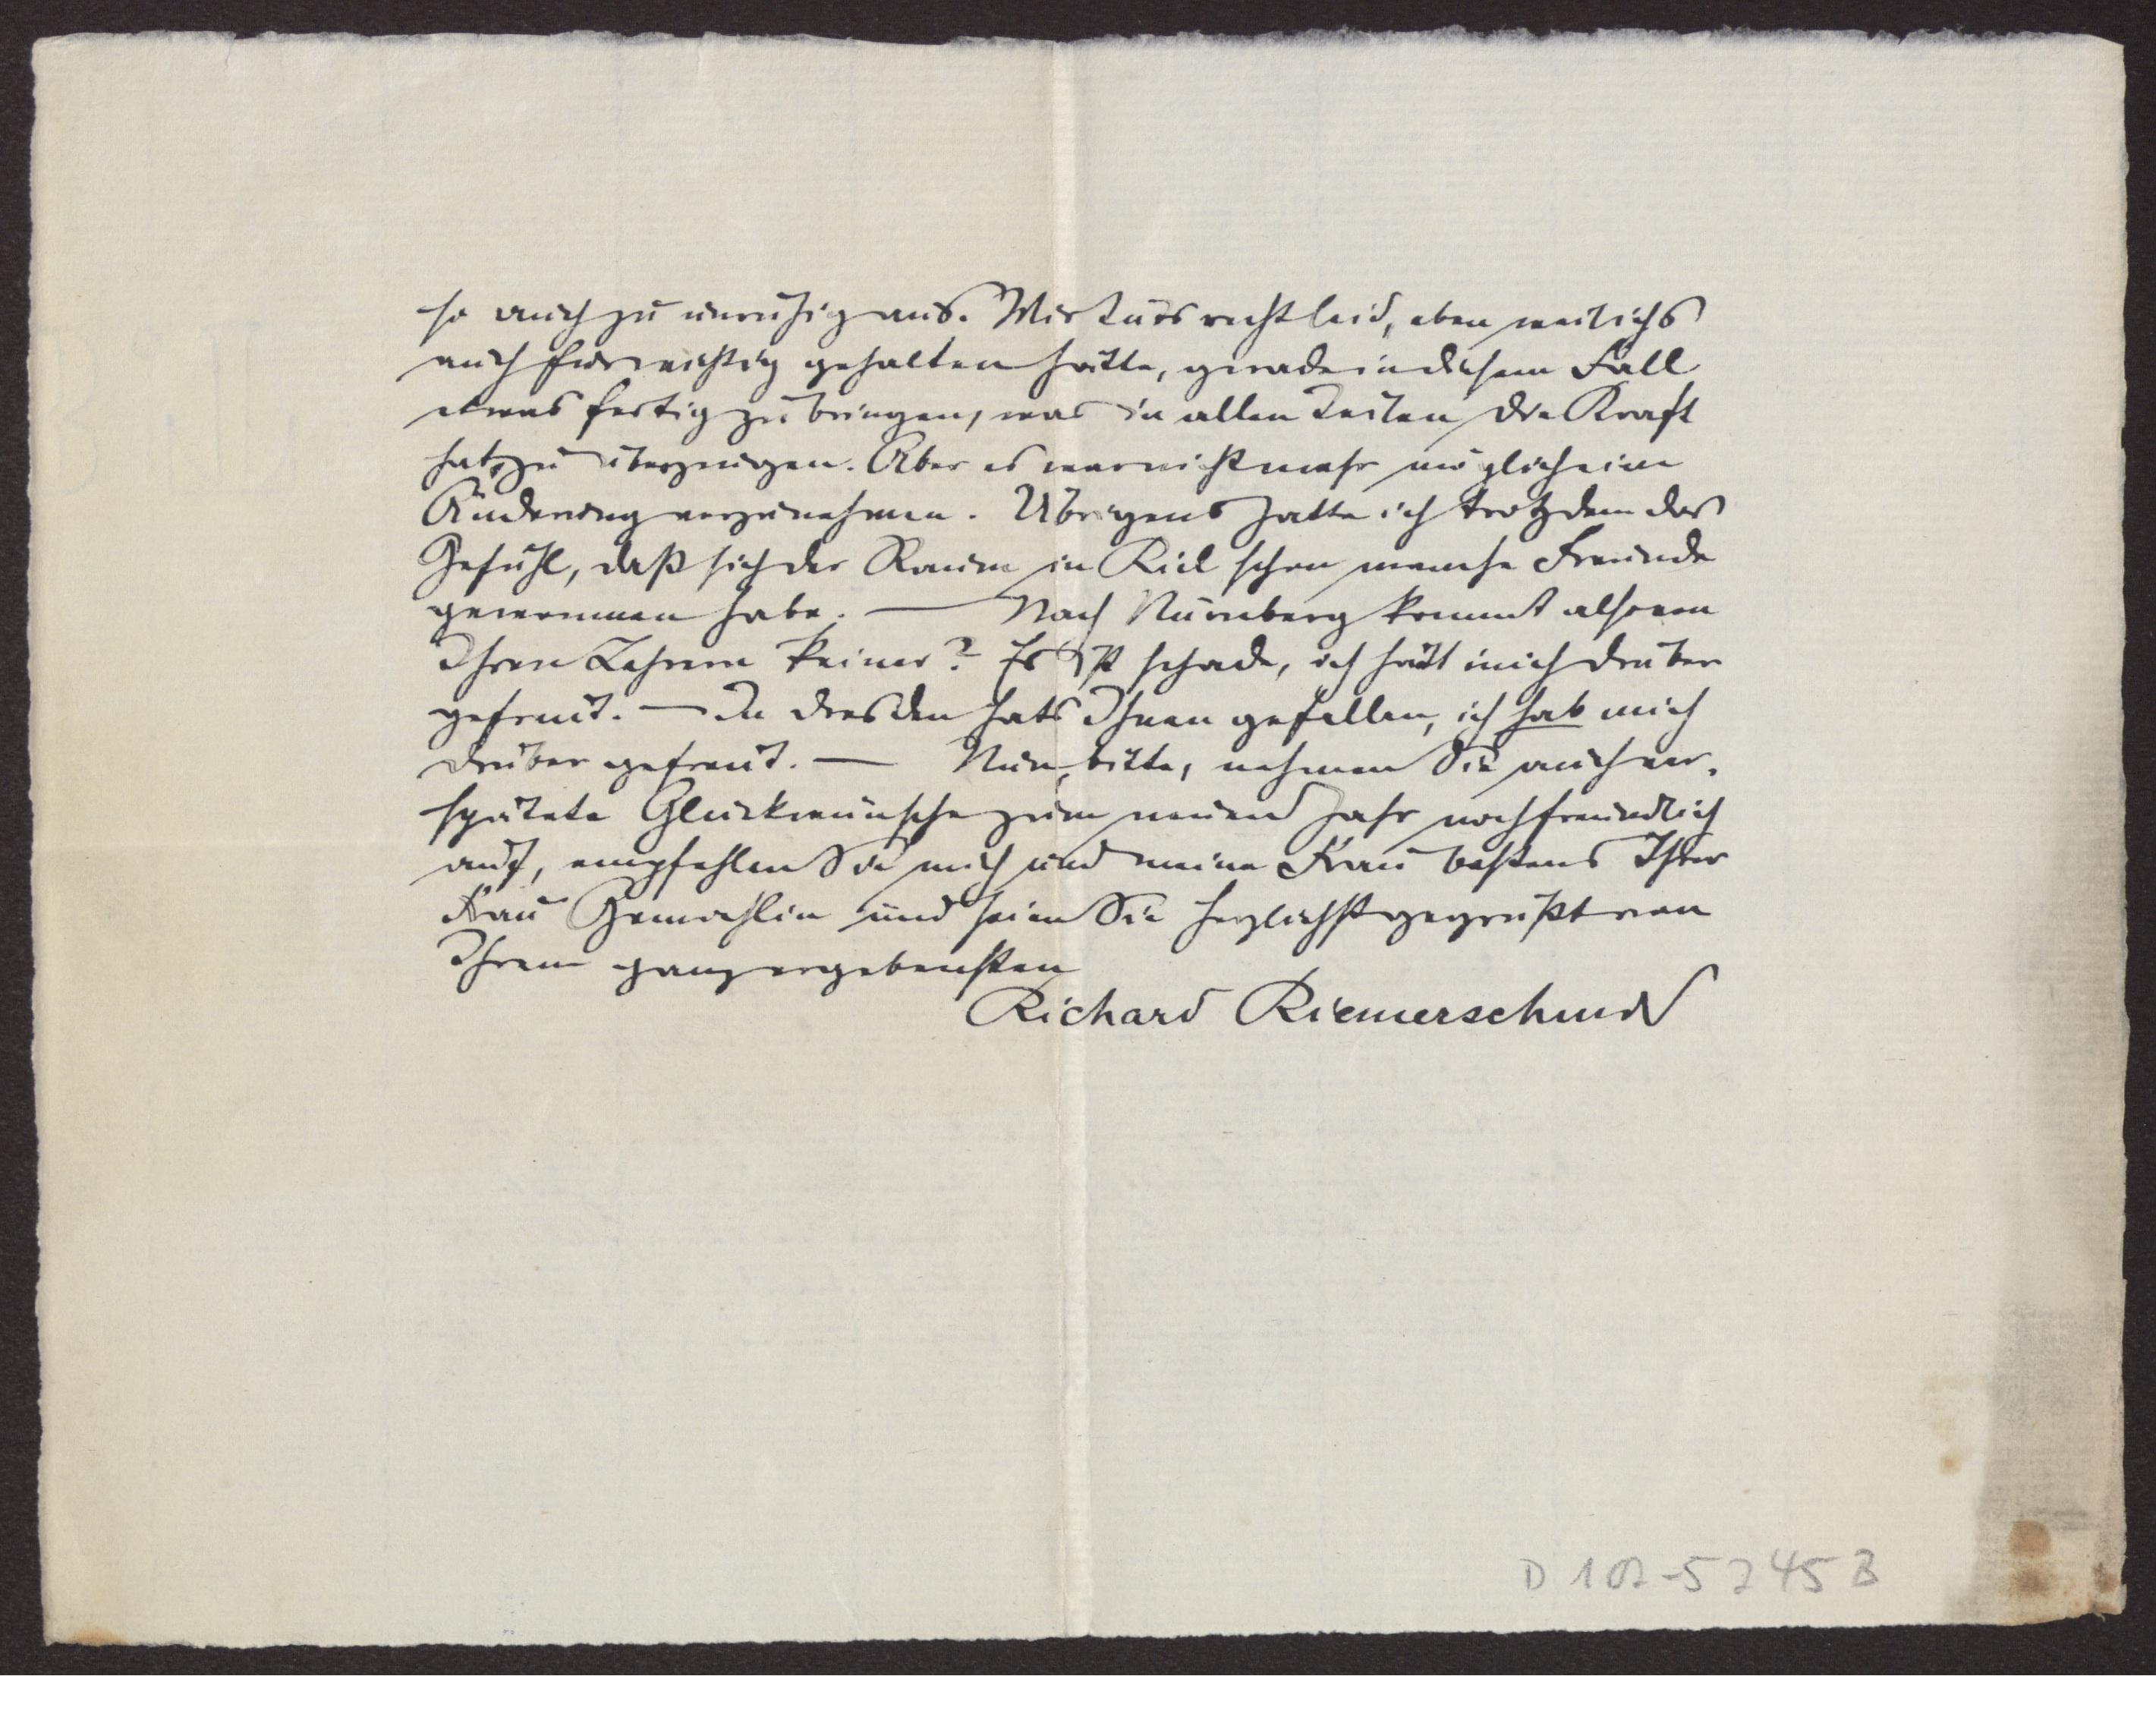 so auch zu unruhig aus. Mir tuts recht leid, eben weil ichs
auch für wichtig gehalten hätte, gerade in diesem Fall
etwas fertig zu bringen, was in allen Teilen die Kraft
hat, zu überzeugen. Aber es war nicht mehr möglich eine
Änderung vorzunehmen. Übrigens hatte ich trotzdem das
Gefühl, daß sich der Raum in Kiel schon manche Freunde
gewonnen habe. — Nach Nürnberg kommt also von
Ihren Lehrern keiner? Es ist schade, ich hätt mich drüber
gefreut. — In Dresden hats Ihnen gefallen, ich hab mich
drüber gefreut. — Nun, bitte, nehmen Sie auch ver-
spätete Glückwünsche zum neuen Jahr noch freundlich
auf, empfehlen Sie mich und meine Frau bestens Ihrer
Frau Gemahlin und seien Sie herzlichst gegrüßt von
Ihrem ganz ergebensten
Richard Riemerschmid
D 102-5245 B